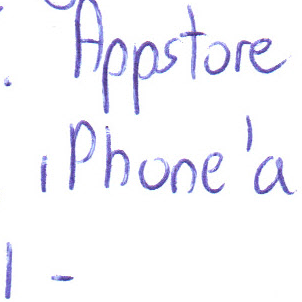 Appstore
iPhone'a
1 -